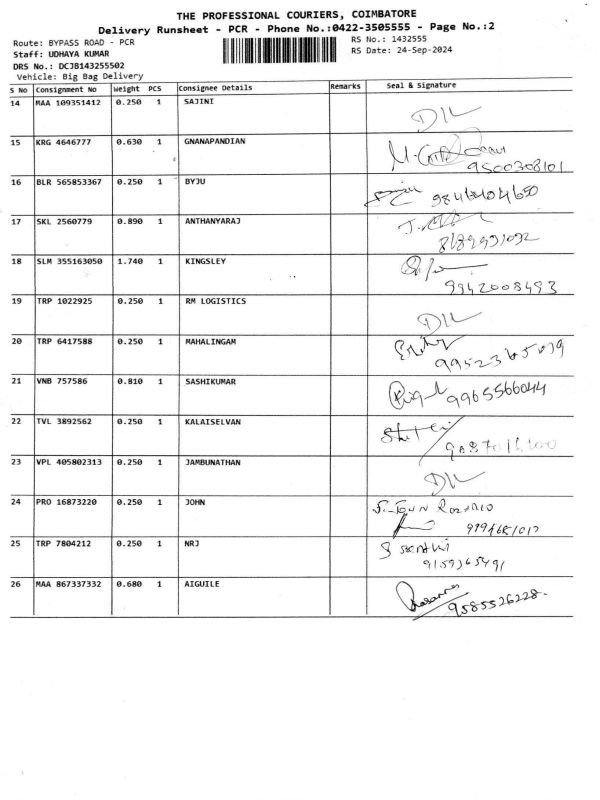 THE PROFESSIONAL COURIERS, COIMBATORE
Delivery Runsheet - PCR - Phone No.:0422-3505555 - Page No.:2
Route: BYPASS ROAD - PCR
RS No.: 1432555
Staff: UDHAYA KUMAR
RS Date: 24-Sep-2024
DRS No.: DCJB143255502
Vehicle: Big Bag Delivery
S No Consignment No Weight PCS Consignee Details Remarks Seal & Signature
14 MAA 109351412 0.250 1 SAJINI
15 KRG 4646777 0.630 1 GNANAPANDIAN
9500308101
16 BLR 565853367 0.250 1 BYJU
17 SKL 2560779 0.890 1 ANTHANYARAJ
18 SLM 355163050 1.740 1 KINGSLEY
9942008493
19 TRP 1022925 0.250 1 RM LOGISTICS
20 TRP 6417588 0.250 1 MAHALINGAM
21 VNB 757586 0.810 1 SASHIKUMAR
9965566044
22 TVL 3892562 0.250 1 KALAISELVAN
23 VPL 405802313 0.250 1 JAMBUNATHAN
24 PRO 16873220 0.250 1 JOHN
25 TRP 7804212 0.250 1 NRJ
26 MAA 867337332 0.680 1 AIGUILE
9585526228.